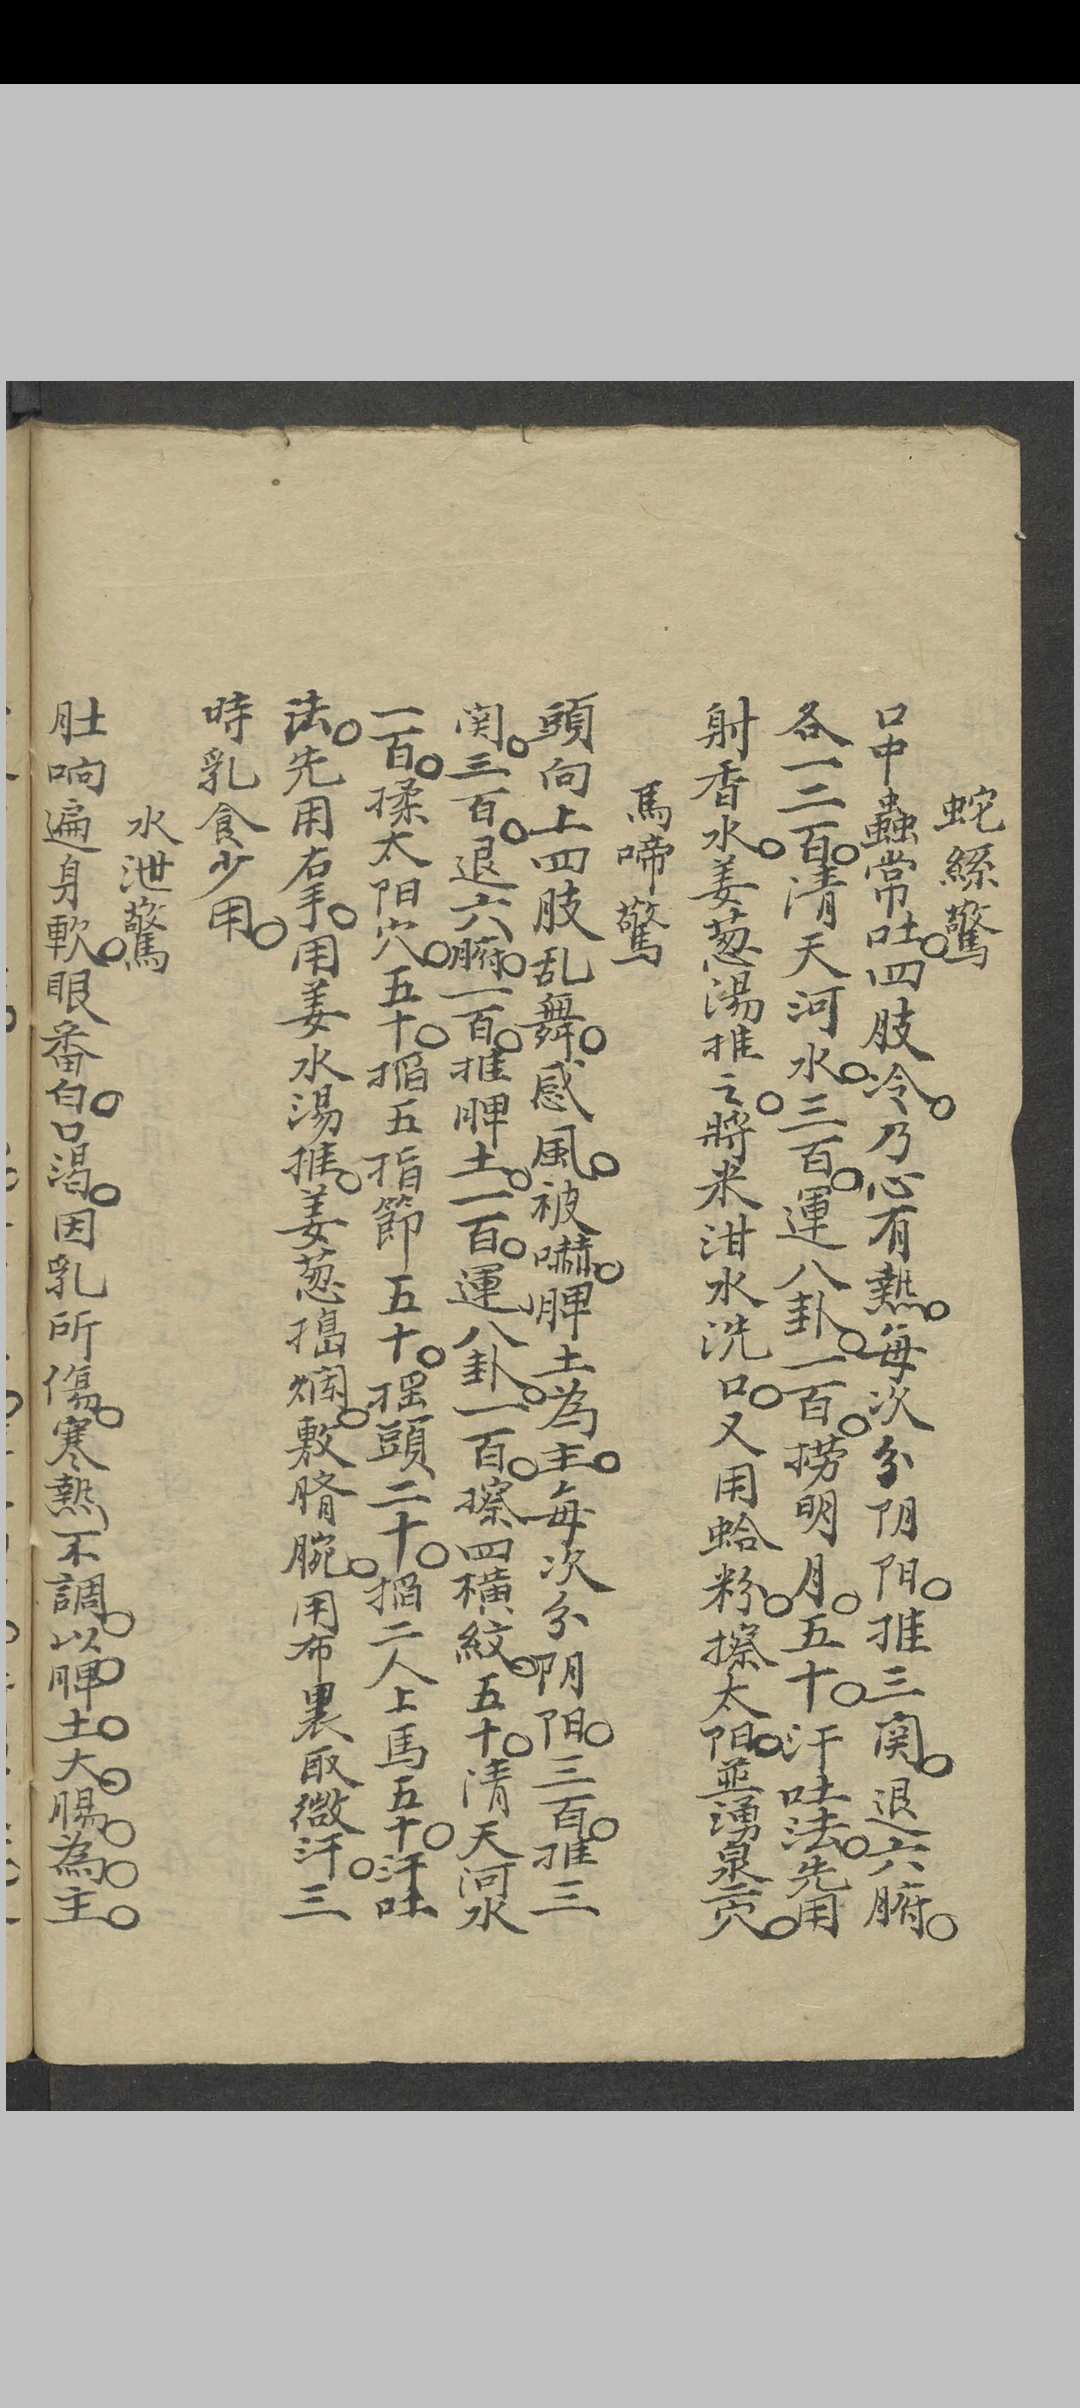 蛇絲驚
口中蟲常吐。四肢冷。乃心有熱。每次分阴阳。推三関。退六腑。
各一二百。清天河水。三百。運八卦。一百。捞明月。五十。汗吐法。先用
射香水。姜葱湯推之。將米泔水洗口。又用蛤粉。擦太阳。並湧泉穴。
馬啼驚
頭向上四肢乱舞。感風。被嚇。脾土為主。每次分阴阳。三百。推三
関。三百。退六腑。一百。推脾土。一百。運八卦。一百。擦四横紋。五十。清天河水
一百。揉太阳穴。五十。掐五指節五十。摇頭二十。掐二人上馬五十。汗吐
法。先用右手。用姜水湯推。姜葱搗爛。敷臍腕。用布裹取微汗。三
時乳食少用。
水泄驚
肚响遍身軟。眼番白。口渴。因乳所傷。寒熱不調。以脾。土。大。腸。為。主。